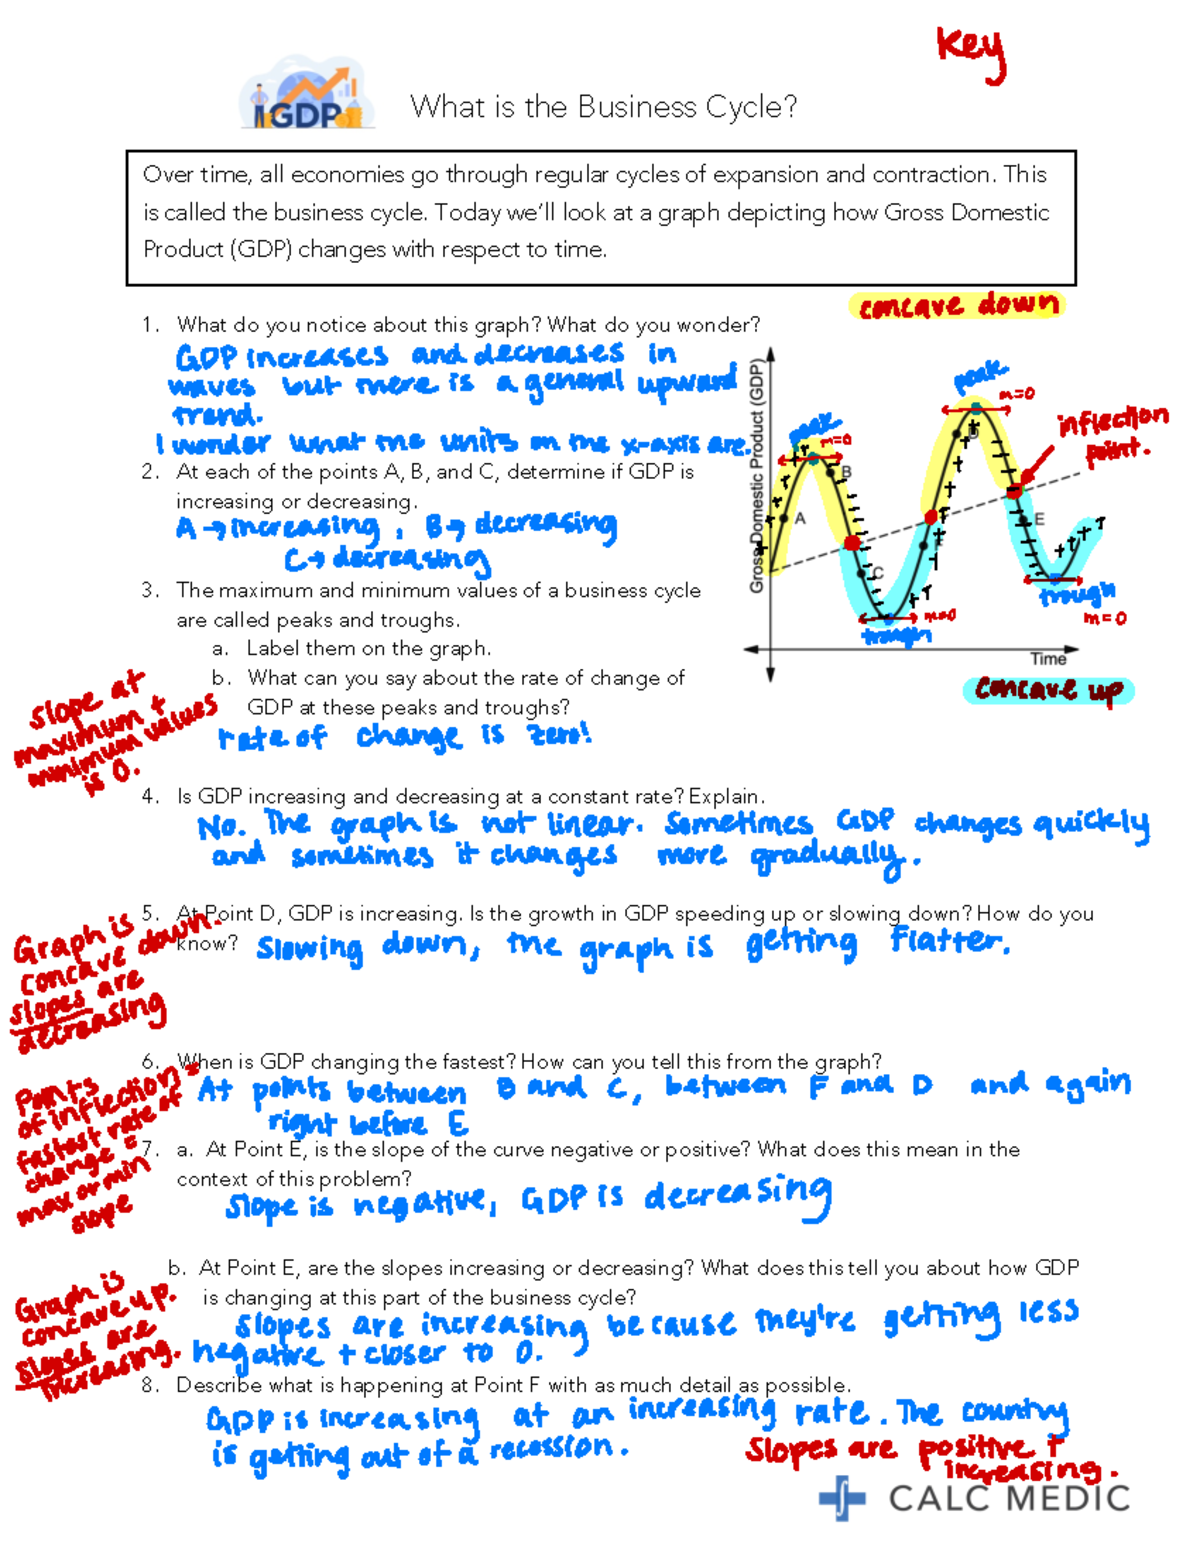 Key
GDP
What is the Business Cycle?
Over time, all economies go through regular cycles of expansion and contraction. This
is called the business cycle. Today we'll look at a graph depicting how Gross Domestic
Product (GDP) changes with respect to time.
concave down
1. What do you notice about this graph? What do you wonder?
GDP increases and decreases in
waves but there is a general upward
trend.
I wonder what the units on the x-axis are.
2. At each of the points A, B, and C, determine if GDP is
increasing or decreasing.
A → increasing, B → decreasing
C → decreasing
3. The maximum and minimum values of a business cycle
are called peaks and troughs.
a. Label them on the graph.
b. What can you say about the rate of change of
GDP at these peaks and troughs?
rate of change is zero!
slope at
maximum +
minimum values
is 0.
Gross Domestic Product (GDP)
peak
m=0
peak
m=0
inflection
point.
A
B
C
D
E
F
trough
m=0
trough
m=0
Time
concave up
4. Is GDP increasing and decreasing at a constant rate? Explain.
No. The graph is not linear. Sometimes GDP changes quickly
and sometimes it changes more gradually.
5. At Point D, GDP is increasing. Is the growth in GDP speeding up or slowing down? How do you
know?
Slowing down, the graph is getting flatter.
Graph is
concave down.
slopes are
decreasing
6. When is GDP changing the fastest? How can you tell this from the graph?
At points between B and C, between F and D and again
right before E
Points
of inflection =
fastest rate of
change =
max or min
slope
7. a. At Point E, is the slope of the curve negative or positive? What does this mean in the
context of this problem?
Slope is negative, GDP is decreasing
b. At Point E, are the slopes increasing or decreasing? What does this tell you about how GDP
is changing at this part of the business cycle?
Slopes are increasing because they're getting less
negative + closer to 0.
Graph is
concave up.
slopes are
increasing.
8. Describe what is happening at Point F with as much detail as possible.
GDP is increasing at an increasing rate. The country
is getting out of a recession.
Slopes are positive +
increasing.
CALC MEDIC